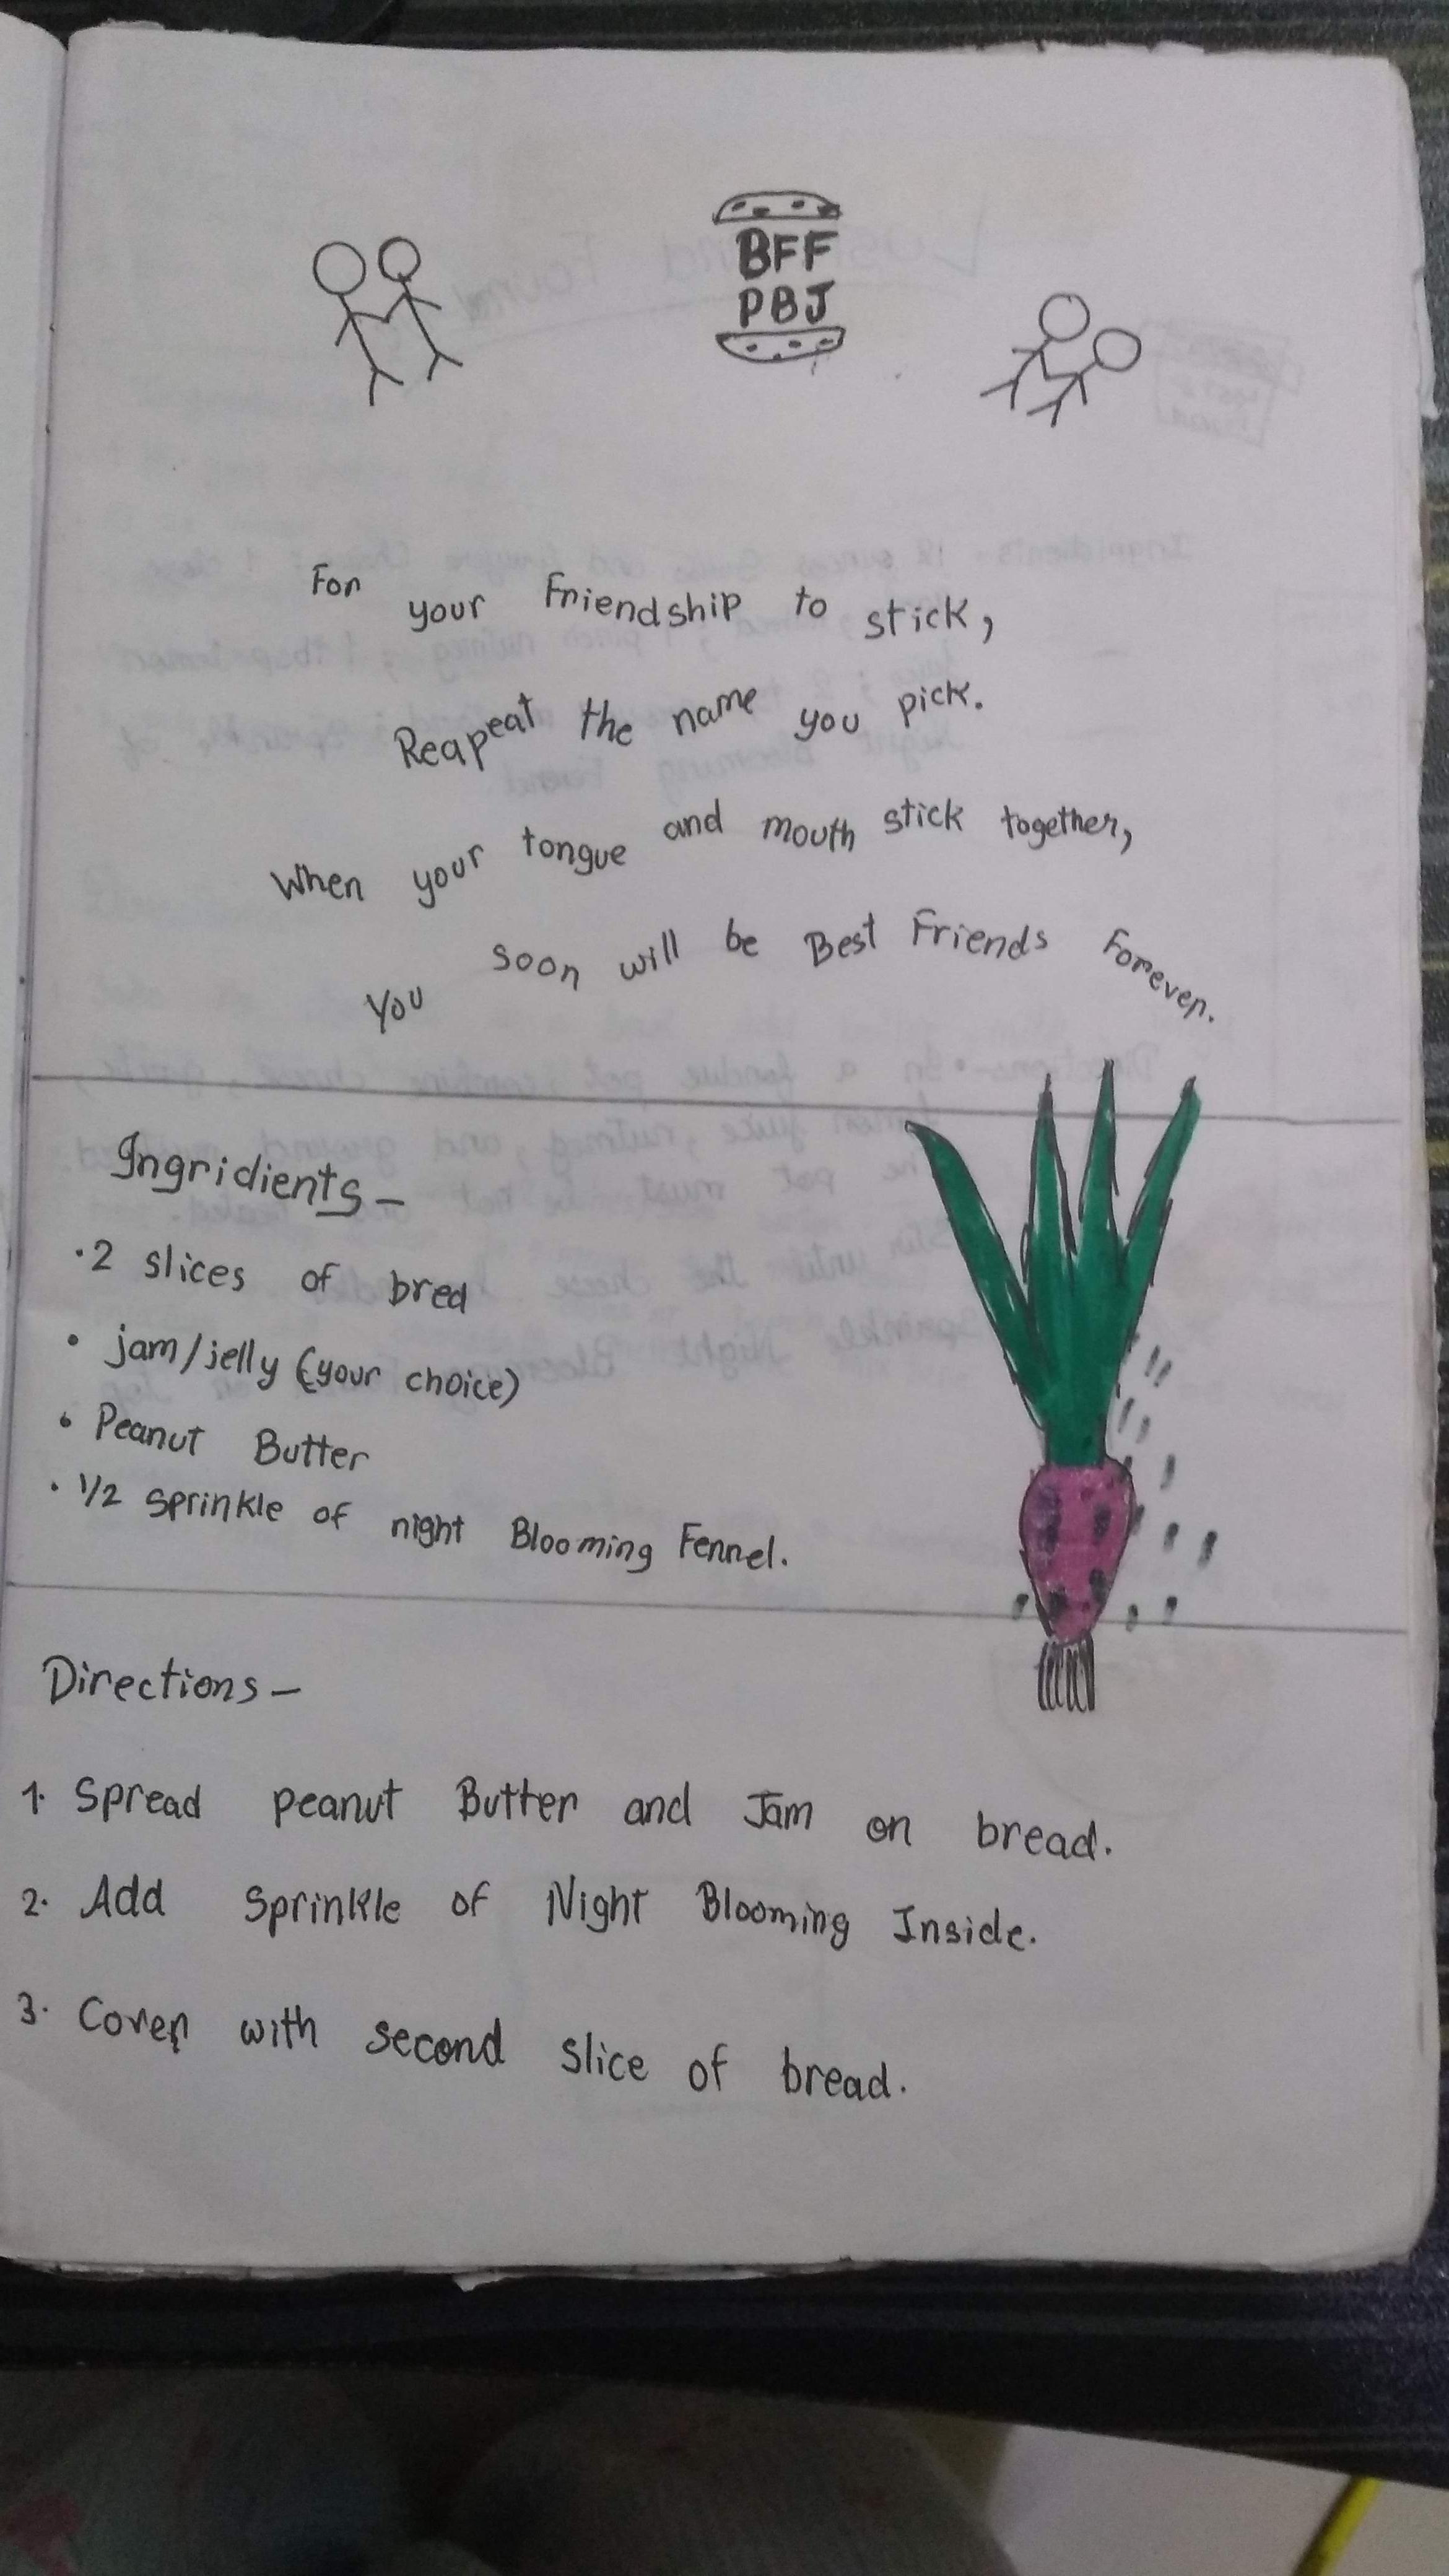 BFF
PBJ
For your Friendship to stick,
Reapeat the name you pick.
When your tongue and mouth stick together,
You soon will be Best Friends Forever.
Ingridients -
• 2 slices of bred
• jam/jelly (your choice)
• Peanut Butter
• 1/2 sprinkle of night Blooming Fennel.
Directions -
1. Spread peanut Butter and Jam on bread.
2. Add Sprinkle of Night Blooming Inside.
3. Cover with second slice of bread.